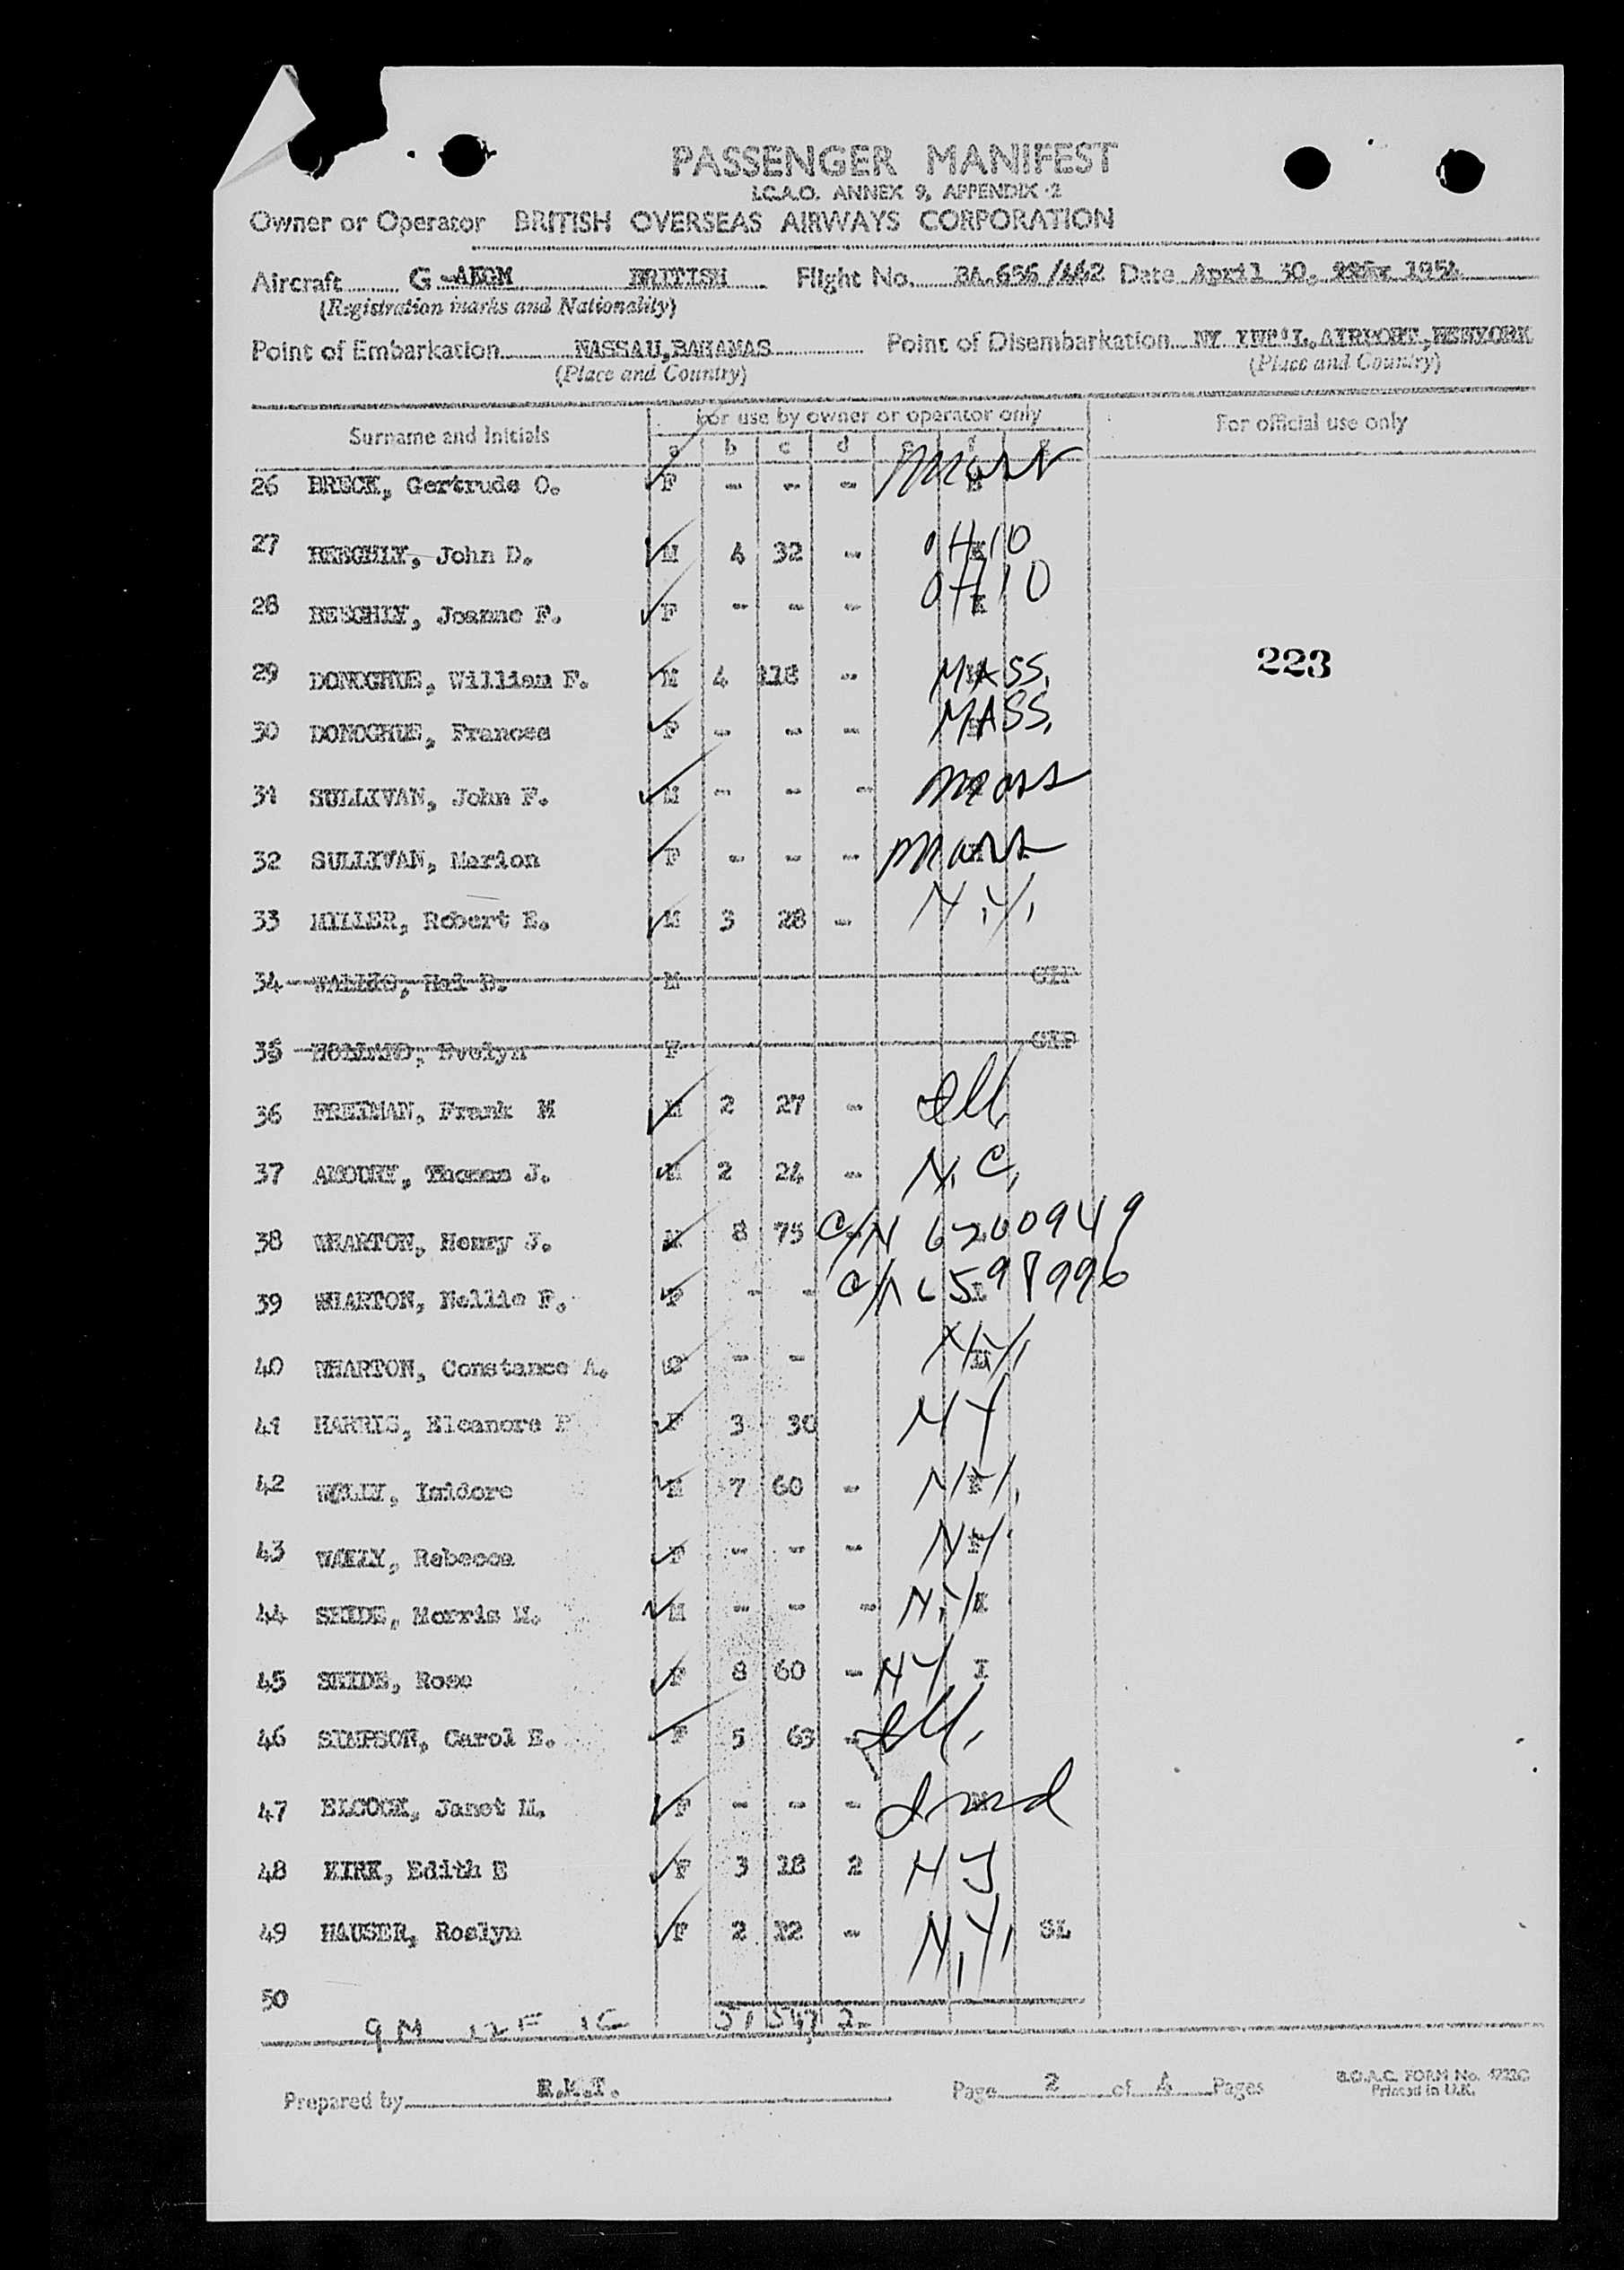 PASSENGER MANIFEST
I.C.A.O. ANNEX 9, APPENDIX 2
Owner or Operator BRITISH OVERSEAS AIRWAYS CORPORATION
Aircraft G - BRITISH Flight No. BA.656/442 Date April 30, 1954
(Registration marks and Nationality)
Point of Embarkation NASSAU, BAHAMAS Point of Disembarkation NY INT'L. AIRPORT, NEWYORK
(Place and Country) (Place and Country)
Surname and Initials For use by owner or operator only For official use only
a b c d e f g
26 BRECK, Gertrude O. F - - - Mass
27 BEEGHLY, John D. M 4 32 - OHIO
28 BEEGHLY, Joanne F. F - - - OHIO
29 DONOGHUE, William F. M 4 118 - MASS. 223
30 DONOGHUE, Frances F - - - MASS.
31 SULLIVAN, John F. M - - - Mass
32 SULLIVAN, Marion F - - - Mass
33 MILLER, Robert E. M 3 28 - N.Y.
34 WALLIS, Hal B. M
35 Evelyn F
36 FREIMAN, Frank M M 2 27 - Ill.
37 Thomas J. M 2 24 - N.C.
38 WHARTON, Henry J. M 8 75 C/N 6200949
39 WHARTON, Nellie F. F - -
40 WHARTON, Constance A. C - - N.Y.
41 HARRIS, Eleanore F 3 30 NY
42 Isidore M 7 60 - N.Y.
43 Rebecca F - - - NY
44 Morris M. M - - - N.Y.
45 Rose F 8 60 - NY I
46 SIMPSON, Carol E. F 5 63 - Ill.
47 ELCOCK, Janet M. F - - - Ind
48 KIRK, Edith E F 3 18 2 NJ
49 HAUSER, Roslyn F 2 12 - N.Y. SL
50
9M 12F 1C 51 547 2
Prepared by R.M.T. Page 2 of 4 Pages B.O.A.C. FORM No.
Printed in U.K.